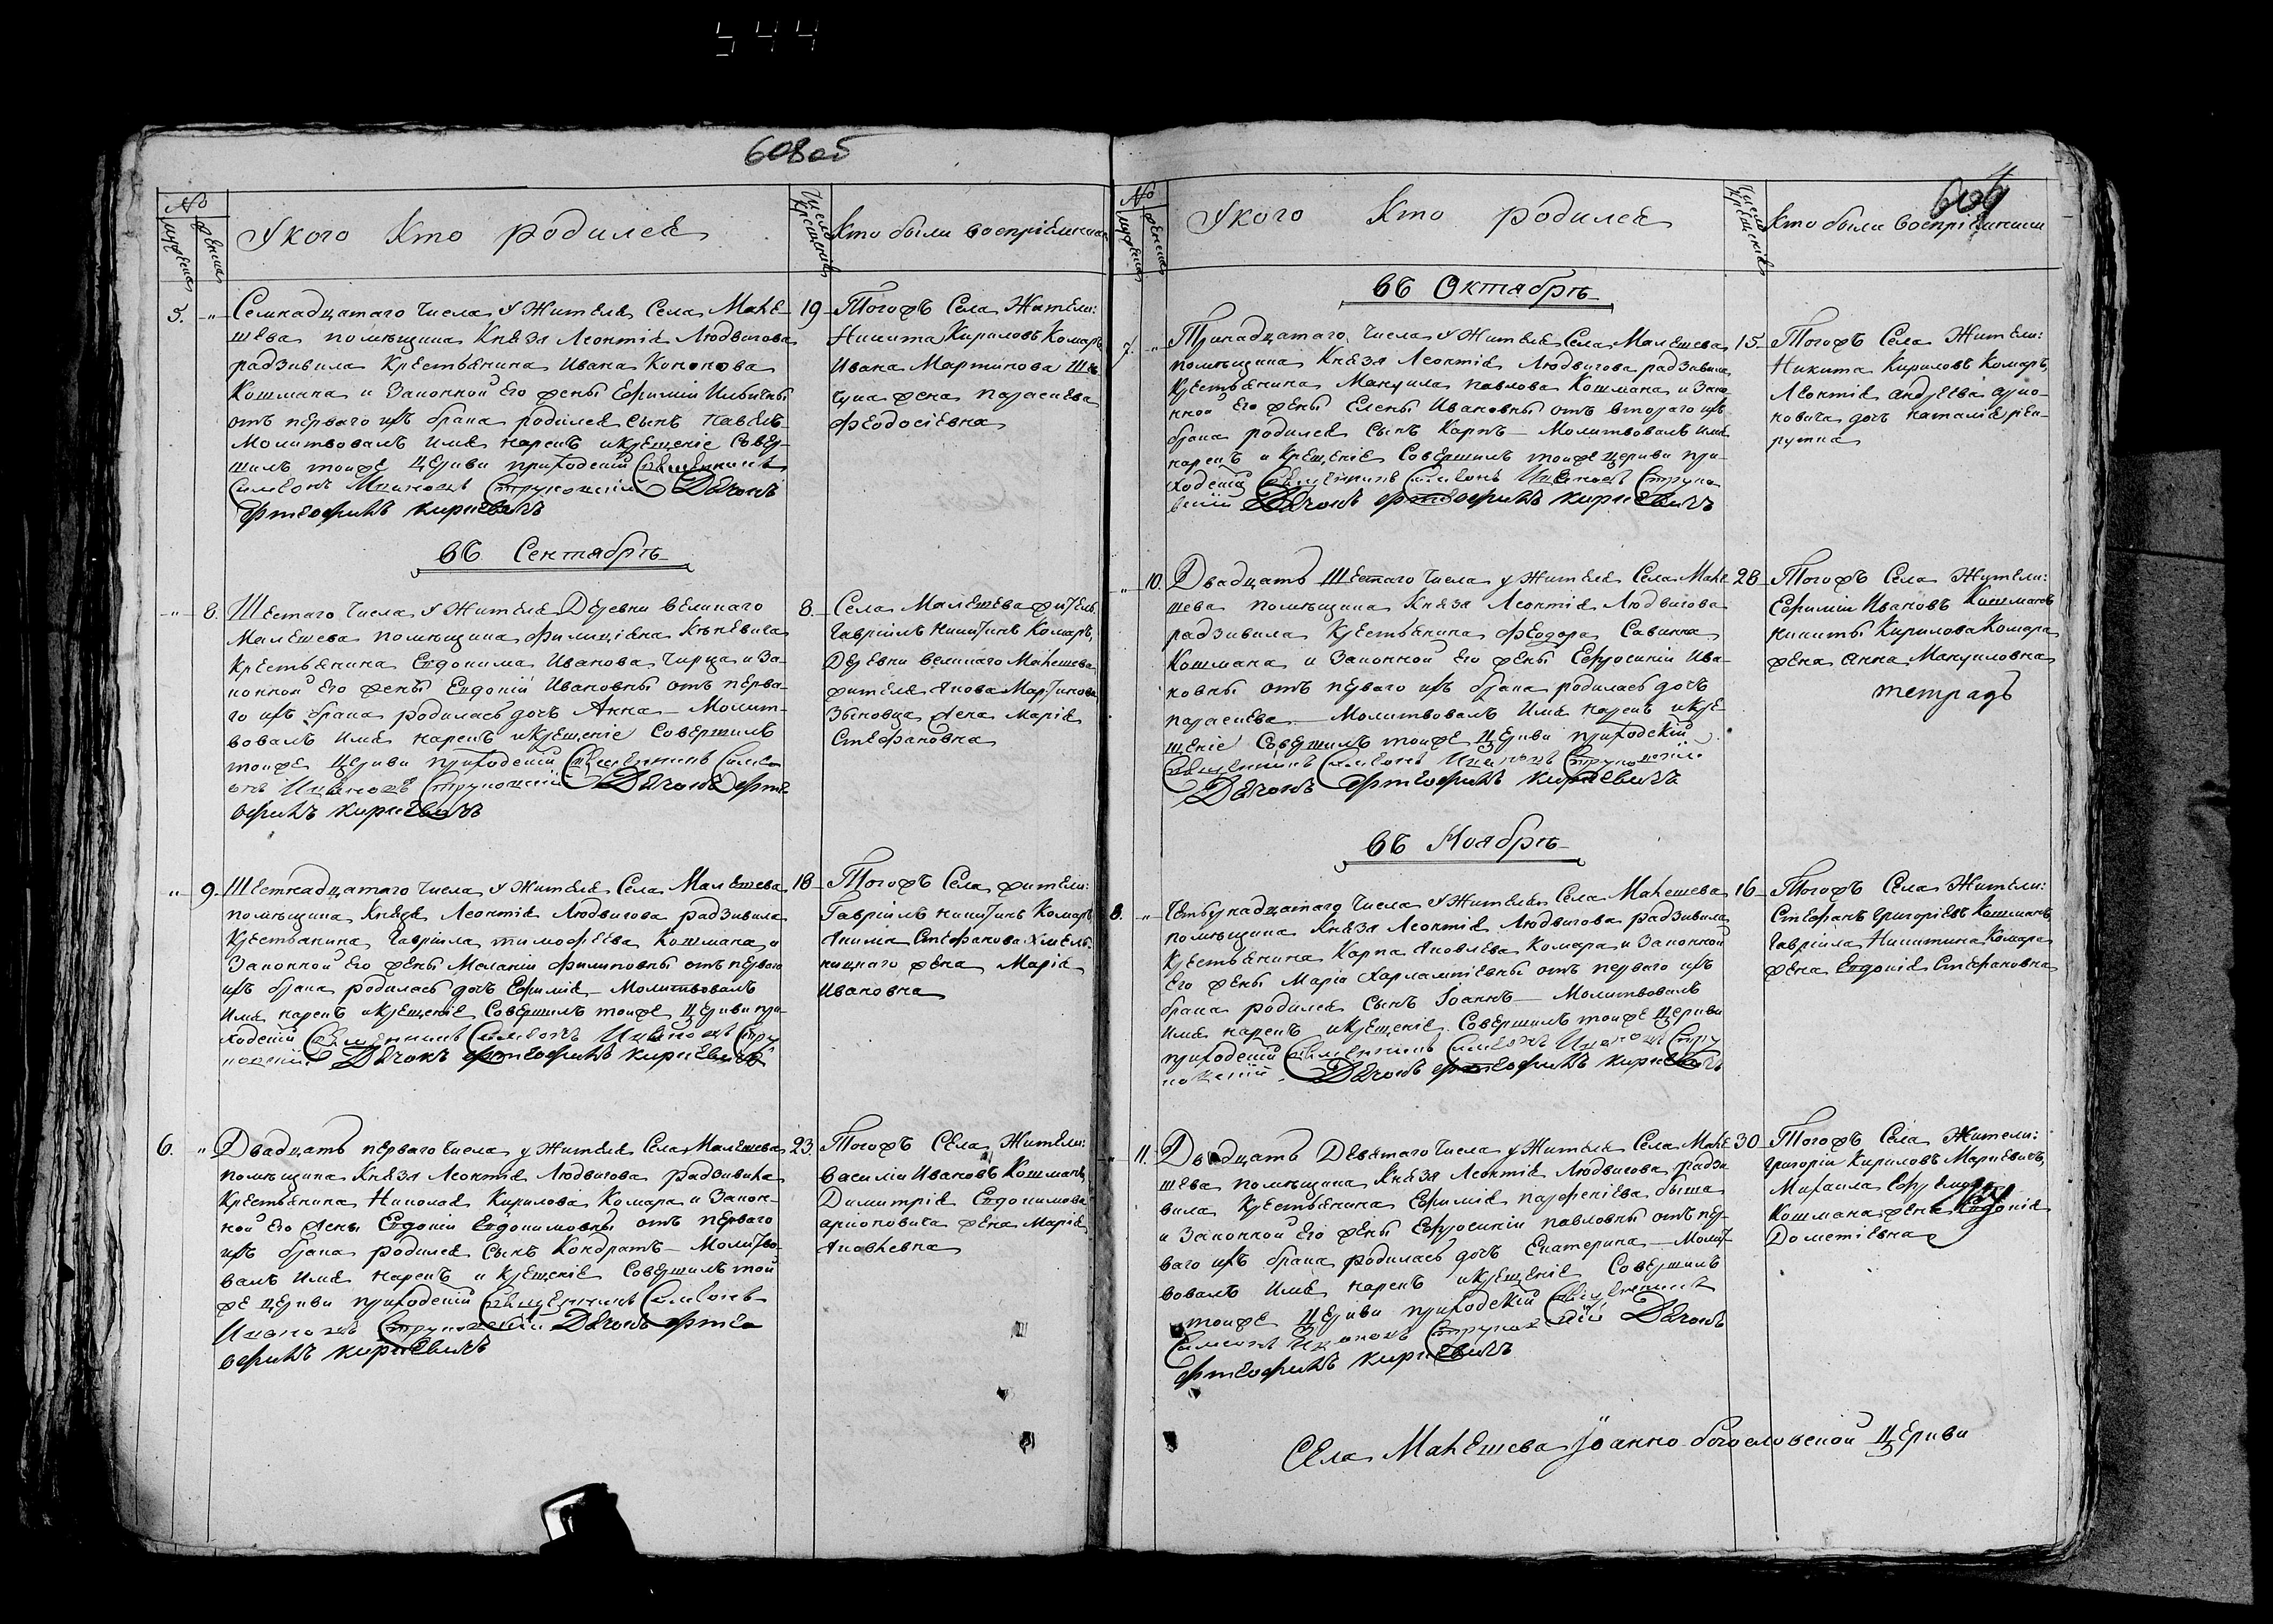 544
608об
№
мужеска
женска
У кого Кто родился
Число Крещенія
Кто были воспріемники
5. „ Семнадцатаго Числа У Жителя Села Мале-
шева помѣщика Князя Леонтія Людвигова
радзивила Крестьянина Ивана Кононова
Кошмана и Законной его жены Ефиміи Ильиены
отъ перваго ихъ брака родился сынъ Павелъ
Молитвовалъ имя нарекъ и крещеніе Совер-
шилъ тоиже церкви приходскій Священникъ
Симеонъ Струковскій Дячокъ
Киркевичъ
19 Тогожъ Села Жители:
Никита Кириловъ Комаръ
Ивана Мартинова
жена параскева
Феодосіевна
въ Сентябрѣ
„ 8. Шестаго Числа У Жителя Деревни великаго
Малешева помѣщика фелиціяна
Крестьянина Евдокима Иванова Чирца и За-
конной его жены Евдокіи Ивановны отъ перва-
го ихъ брака родилась дочь Анна — Молит-
вовалъ имя нарекъ и крещеніе Совершилъ
тоиже церкви приходскій Священникъ Симе
онъ Струковскій Дячокъ
Киркевичъ
8. Села Малешева жители:
Гавріилъ Никитинъ Комаръ,
Деревни великаго Малешева
жителя Якова Мартинова
жена Марія
Стефановна
„ 9. Шестнадцатаго Числа У Жителя Села Малешева
помѣщика Князя Леонтія Людвигова радзивила
Крестьянина Гавріила тимофеева Кошмана и
Законной его жены Меланіи Филиповны отъ перваго
ихъ брака родилась дочь Ефимія — Молитвовалъ
имя нарекъ и крещеніе Совершилъ тоиже церкви при-
ходскій Священникъ Симеонъ Стру
ковскій Дячокъ Киркевичъ
18 Тогожъ Села жители:
Гавріилъ Никитинъ Комаръ
Якима Стефанова Хмель-
ницкаго жена Марія
Ивановна
6. „ Двадцать перваго Числа у Жителя Села Малешева
помѣщика Князя Леонтія Людвигова радзивила
Крестьянина Николая Кирилова Комара и Закон-
ной его жены Евдокіи Евдокимовны отъ перваго
ихъ брака родился сынъ Кондратъ — Молитво-
валъ имя нарекъ и крещеніе Совершилъ той
же церкви приходскій Священникъ Симеонъ
Струковскій Дячокъ
Киркевичъ
23. Тогожъ Села Жители:
василій Ивановъ Кошманъ,
Димитрія Евдокимова
жена Марія
Яковлевна
604
№
мужеска
женска
У кого Кто родился
Число Крещенія
Кто были воспріемники
въ Октябрѣ
7. „ Тринадцатаго Числа У Жителя Села Малешева
помѣщика Князя Леонтія Людвигова радзивила
Крестьянина Мануила павлова Кошмана и Зако
нной его жены Елены Ивановны отъ втораго ихъ
брака родился сынъ Карпъ — Молитвовалъ имя
нарекъ и крещеніе Совершилъ тоиже церкви при
ходскій Священникъ Симеонъ Струко
вскій Дячокъ Киркевичъ
15 Тогожъ Села Жители:
Никита Кириловъ Комаръ,
Леонтія андреева
дочь наталія
„ 10. Двадцать Шестаго Числа у Жителя Села Мале
шева помѣщика Князя Леонтія Людвигова
радзивила Крестьянина Феодора Савина
Кошмана и Законной его жены Ефросиніи Ива-
новны отъ перваго ихъ брака родилась дочь
параскева — Молитвовалъ имя нарекъ и кре
щеніе Совершилъ тоиже церкви приходскій
Священникъ Симеонъ Струковскій
Дячокъ Киркевичъ
28 Тогожъ Села Жители:
Ефимій Ивановъ Кошманъ
никиты Кирилова Комара
жена анна Мануиловна
тетрадь
въ Ноябрѣ
8. „ Четырнадцатаго Числа У Жителя Села Малешева
помѣщика Князя Леонтія Людвигова радзивила
Крестьянина Карпа Яковлева Комара и Законной
его жены Маріи Харлампіевны отъ перваго ихъ
брака родился сынъ Іоаннъ — Молитвовалъ
имя нарекъ и крещеніе Совершилъ тоиже церкви
приходскій Священникъ Симеонъ Стру
ковскій Дячокъ Киркевичъ
16 Тогожъ Села Жители:
Стефанъ григоріевъ Кошманъ,
Гавріила Никитина Комара
жена Евдокія Стефановна
„ 11. Двадцать Девятаго Числа у Жителя Села Мале
шева помѣщика Князя Леонтія Людвигова радзи
вила Крестьянина Ефимія парфеніева
и Законной его жены Ефросиніи павловны отъ пер-
ваго ихъ брака родилась дочь Екатерина — Молит
вовалъ имя нарекъ и крещеніе Совершилъ
тоиже церкви приходскій Священникъ
Симеонъ Струковскій Дячокъ
Киркевичъ
30 Тогожъ Села Жители:
григорій Кириловъ
Михаила Ефремова
Кошмана жена Евдокія
Дометіевна
Села Малешева Іоанно богословской Церкви